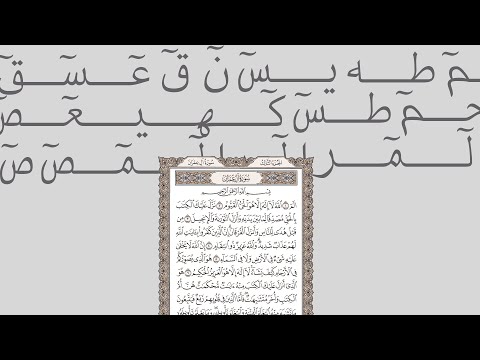 ـمٓ طه يسٓ نٓ قٓ عٓسٓقٓ
حمٓ طسٓ كٓهيعٓصٓ
لٓمٓر الٓمٓ الٓمٓصٓ صٓ
الجزء الثالث سورة آل عمران
سورة آل عمران
بِسْمِ ٱللَّهِ ٱلرَّحْمَٰنِ ٱلرَّحِيمِ
الٓمٓ ١ ٱللَّهُ لَآ إِلَٰهَ إِلَّا هُوَ ٱلْحَىُّ ٱلْقَيُّومُ ٢ نَزَّلَ عَلَيْكَ ٱلْكِتَٰبَ
بِٱلْحَقِّ مُصَدِّقًا لِّمَا بَيْنَ يَدَيْهِ وَأَنزَلَ ٱلتَّوْرَىٰةَ وَٱلْإِنجِيلَ ٣ مِن
قَبْلُ هُدًى لِّلنَّاسِ وَأَنزَلَ ٱلْفُرْقَانَ إِنَّ ٱلَّذِينَ كَفَرُوا۟ بِـَٔايَٰتِ ٱللَّهِ
لَهُمْ عَذَابٌ شَدِيدٌ وَٱللَّهُ عَزِيزٌ ذُو ٱنتِقَامٍ ٤ إِنَّ ٱللَّهَ لَا يَخْفَىٰ
عَلَيْهِ شَىْءٌ فِى ٱلْأَرْضِ وَلَا فِى ٱلسَّمَآءِ ٥ هُوَ ٱلَّذِى يُصَوِّرُكُمْ
فِى ٱلْأَرْحَامِ كَيْفَ يَشَآءُ لَآ إِلَٰهَ إِلَّا هُوَ ٱلْعَزِيزُ ٱلْحَكِيمُ ٦ هُوَ
ٱلَّذِىٓ أَنزَلَ عَلَيْكَ ٱلْكِتَٰبَ مِنْهُ ءَايَٰتٌ مُّحْكَمَٰتٌ هُنَّ أُمُّ
ٱلْكِتَٰبِ وَأُخَرُ مُتَشَٰبِهَٰتٌ فَأَمَّا ٱلَّذِينَ فِى قُلُوبِهِمْ زَيْغٌ فَيَتَّبِعُونَ